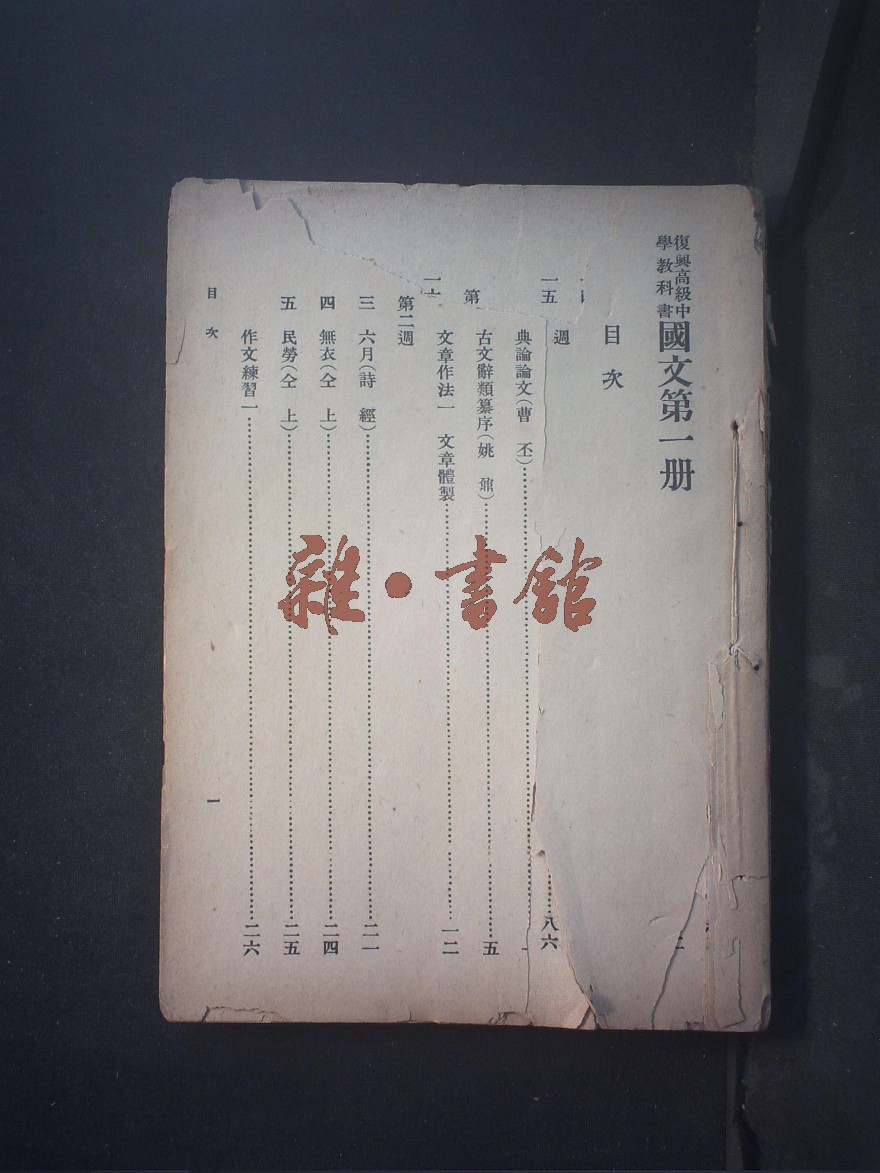 復興高級中
學教科書
國文第一册
目次
週
八六
一五
典論論文(曹 丕)
一
第
古文辭類纂序(姚 鼐)
五
文章作法一 文章體製
一二
第二週
三 六月(詩 經)
二一
四 無衣(仝 上)
二四
五 民勞(仝 上)
二五
作文練習一
二六
目次
一
雜·書館